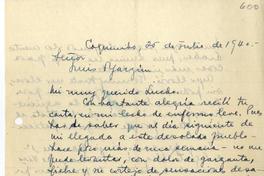 600
Coquimbo, 25 de Julio de 194
Señor
Luis
Mi muy querido Lucho:
Con bastante alegría recibí tu
carta, en mi lecho de enfermo leve. Pues
has de saber, que al día siguiente de
mi llegada a este desolado pueblo
hace más de una semana — no me
pude levantar, con dolor de garganta,
fiebre y mi cortejo de sensaciones desa